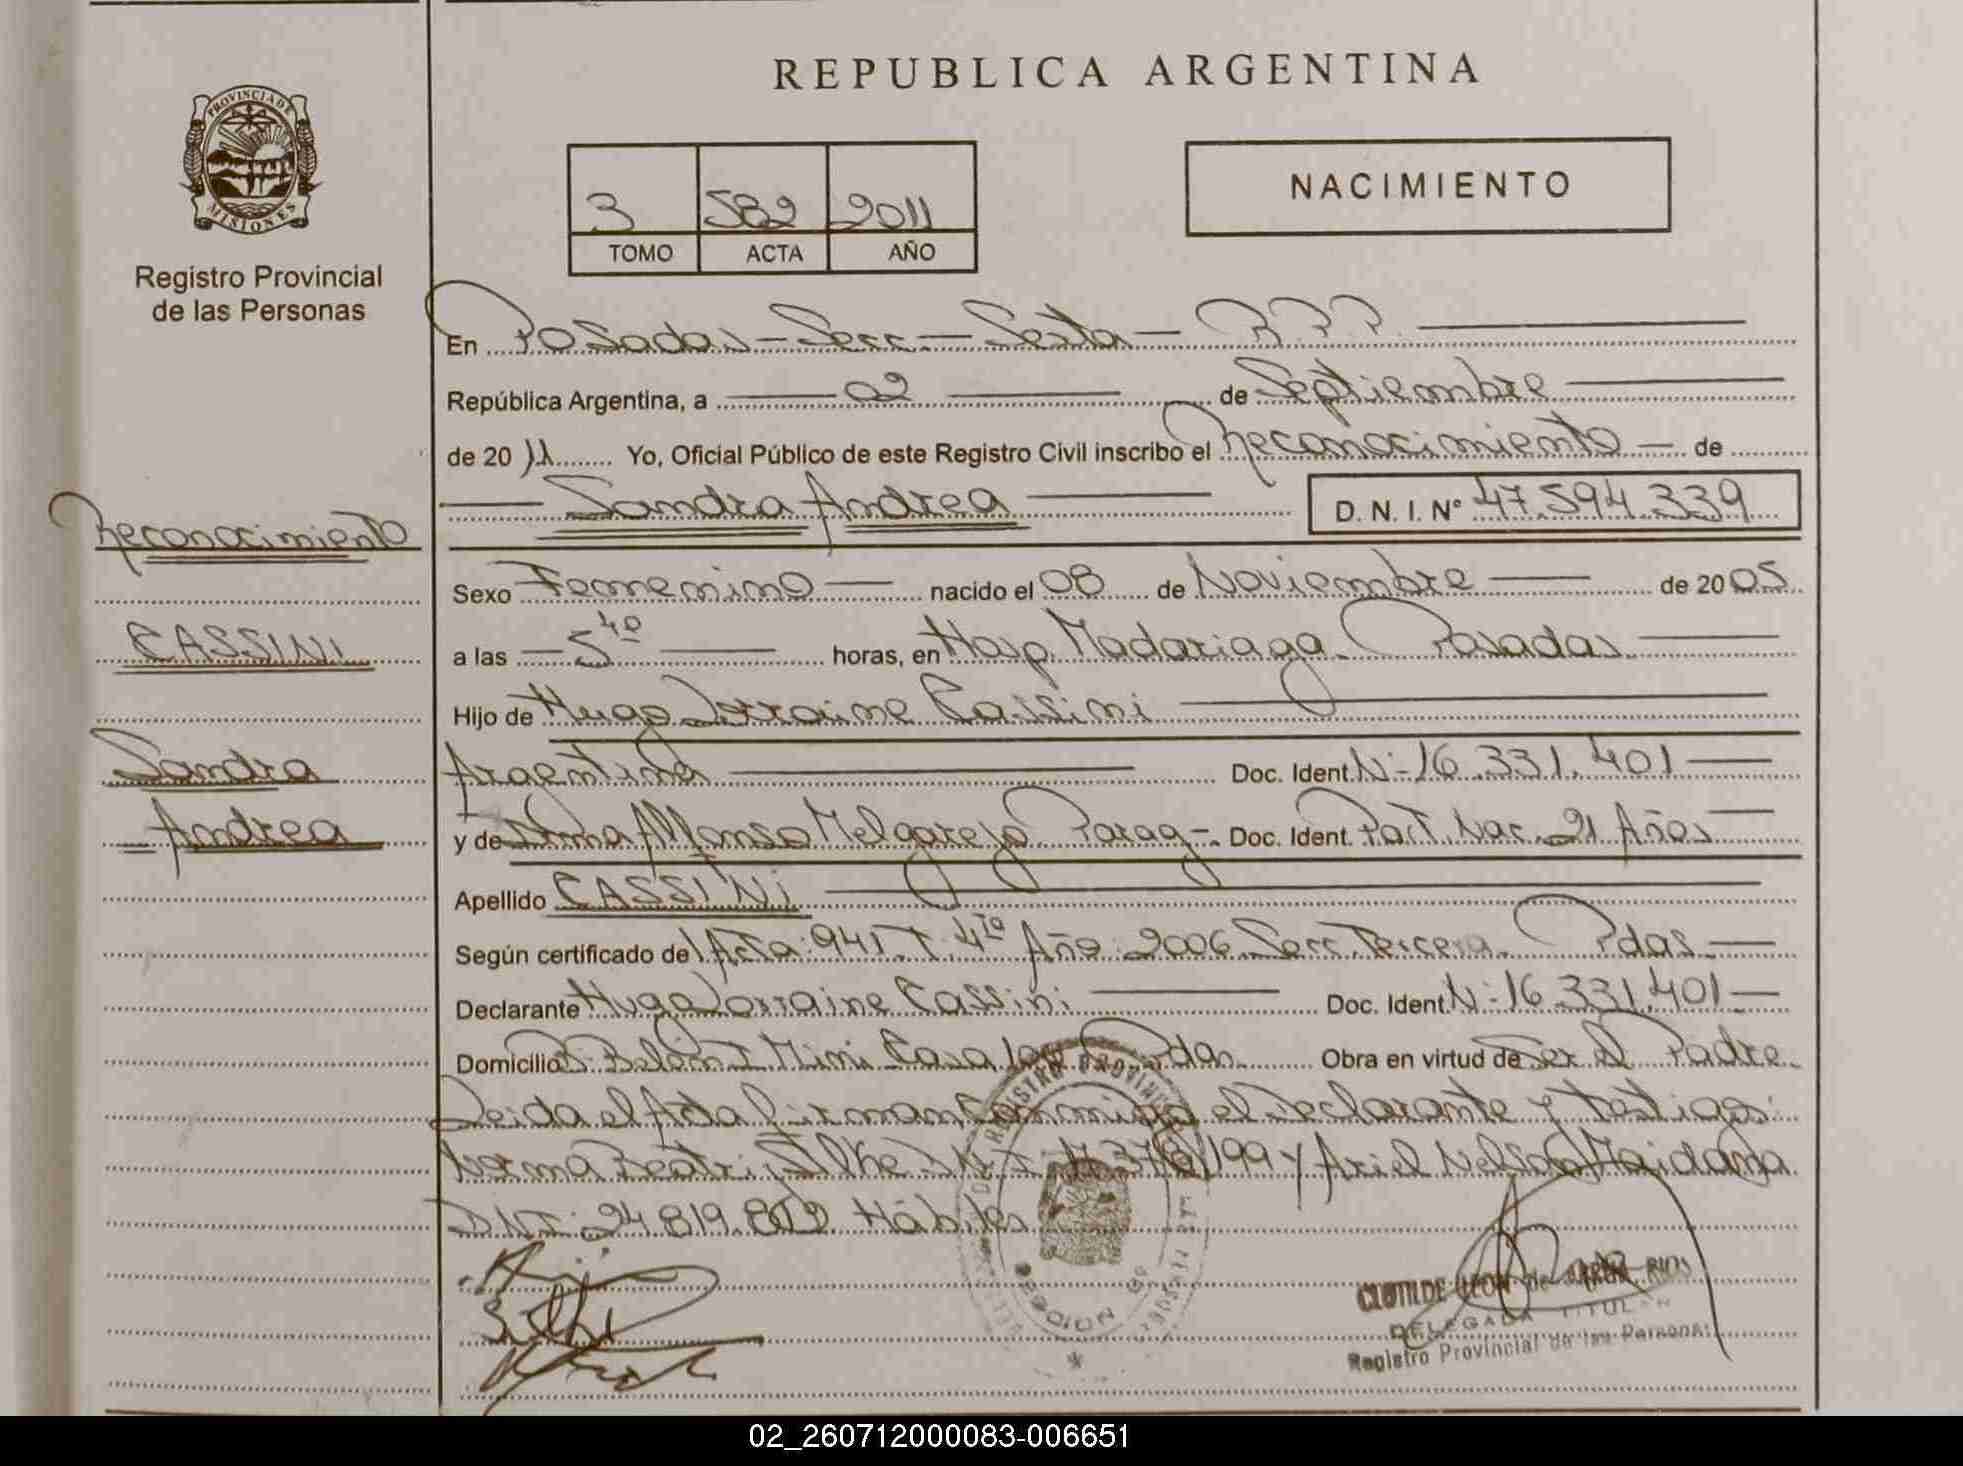 REPUBLICA ARGENTINA
PROVINCIA DE MISIONES
Registro Provincial
de las Personas
3 582 2011
TOMO ACTA AÑO
NACIMIENTO
En Posadas - Secc. - Sexta - R.P.P.
República Argentina, a 02 de Septiembre
de 2011 Yo, Oficial Público de este Registro Civil inscribo el Reconocimiento de
Sandra Andrea D. N. I. Nº 47.594.339
Reconocimiento
CASSINI
Sandra
Andrea
Sexo Femenino nacido el 08 de Noviembre de 2005
a las 5 40 horas, en Hosp. Madariaga - Posadas
Hijo de Hugo Lorraine Cassini
Argentina Doc. Ident. Nº 16.331.401
y de Alfonso Melgarejo Parag. Doc. Ident. Part. Nac. 21 Años
Apellido CASSINI
Según certificado de Acta: 941 T. 4to Año: 2006 Secc. Tercera - Pdas
Declarante Hugo Lorraine Cassini Doc. Ident. Nº 16.331.401
Domicilio Mini Casa Pdas. Obra en virtud de Ser el Padre
Leida el Acta firman conmigo el declarante y testigos:
Norma Beatriz y Ariel Nelson Maidana
DNI: 24.819. Hábiles
CLOTILDE LEON de RIOS
DELEGADA TITULAR
Registro Provincial de las Personas
02_260712000083-006651